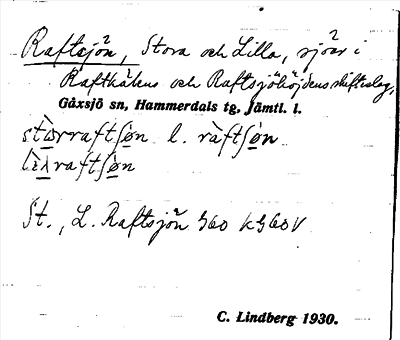 Raftsjön, Stora och Lilla, sjöar i
Raftkälens och Raftsjöhöjdens skifteslag,
Gåxsjö sn, Hammerdals tg, Jämtl. l.
stɷ̀rraftʃøn l. ràftʃøn
lìλraftʃøn
St., L. Raftsjön
C. Lindberg 1930.